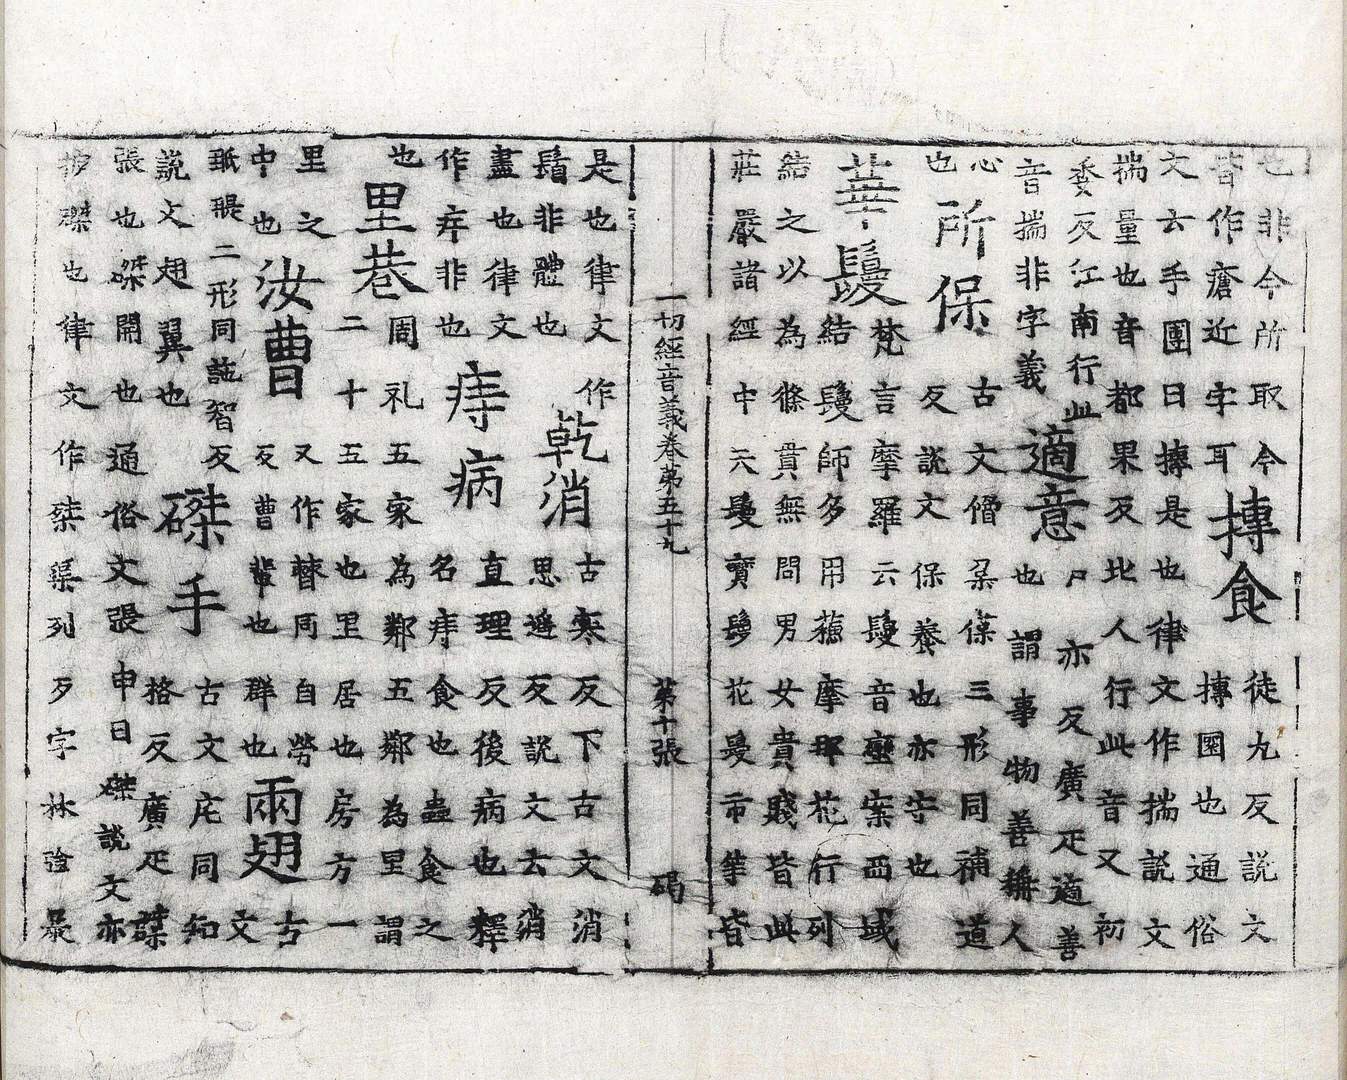 也非今所取今
昔作瘡近字耳
摶食
徒九反說文
摶圜也通俗
文云手團曰摶是也律文作揣說文
揣量也音都果反北人行此音又初
委反江南行此
音揣非字義
適意
尸亦反廣疋適善
也謂事物善稱人
心
也
所保
古文㑼𠈃葆三形同補道
反說文保養也亦守也
華鬘
梵言摩羅云鬘音蠻案西域
結鬘師多用蘓摩那花行列
結之以為條貫無問男女貴賤皆此
莊嚴諸經中云鬘寶鬘花鬘市等皆
一切經音義卷第五十九 第十張 碣
是也律文作
鬚非體也
乾消
古寒反下古文消
思遙反說文云消
盡也律文
作㽽非也
痔病
直理反後病也釋
名痔食也蟲食之
也
里巷
周礼五家為鄰五鄰為里謂
二十五家也里居也房方一
里之
中也
汝曹
又作𣍘同自勞
反曹輩也群也
兩翅
古
文
翄翨二形同詆智反
說文翅翼也
磔手
古文庀同知
格反廣疋磔
張也磔開也通俗文張申曰磔說文亦
磔也律文作桀渠列反字林殓暴